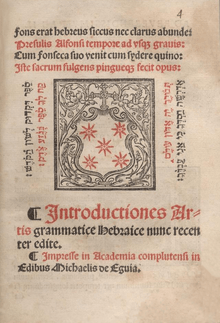 4
Fons erat hebreus siccus nec clarus abunde:
Presulis Alfonsi tempore ad vsqz grauis:
Cum Fonseca suo venit cum sydere quino:
Iste sacrum fulgens pingueqz fecit opus:
¶ Introductiones Ar-
tis grammatice Hebraice nunc recen
ter edite.
¶ Impresse in Academia complutensi in
Edibus Michaelis de Eguia.